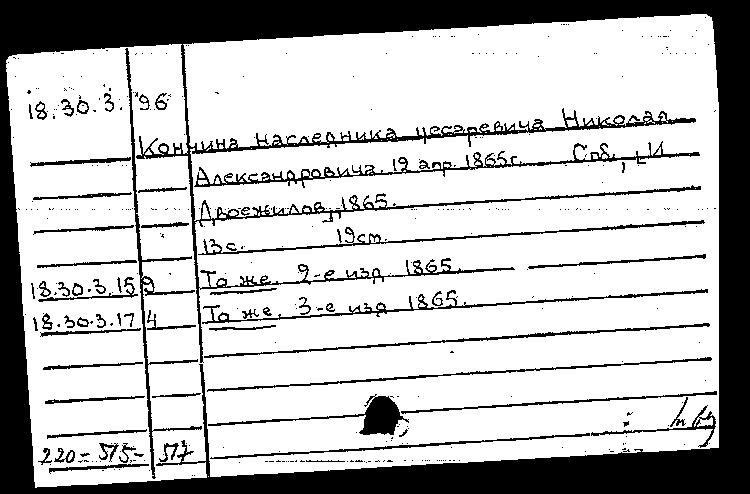 18.30.3.96
Кончина наследника цесаревича Николая
Александровича. 12 апр. 1865г. Спб., [И
Двоежилов], 1865.
13с. 19см.
18.30.3.159 То же. 2-е изд. 1865.
18.30.3.174 То же. 3-е изд. 1865.
220-515-517